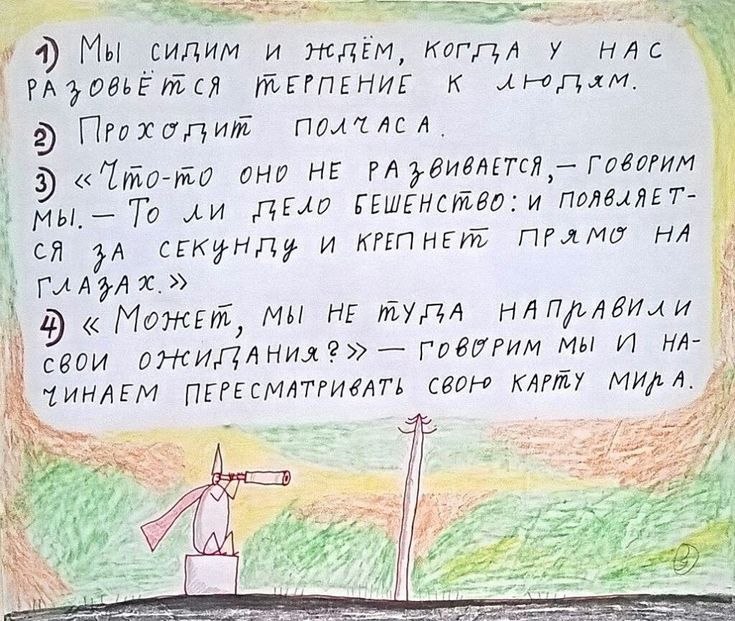 1) Мы сидим и ждём, когда у нас
разовьётся терпение к людям.
2) Проходит полчаса.
3) «Что-то оно не развивается, – говорим
мы. – То ли дело бешенство: и появляет-
ся за секунду и крепнет прямо на
глазах.»
4) « Может, мы не туда направили
свои ожидания?» – говорим мы и на-
чинаем пересматривать свою карту мира.